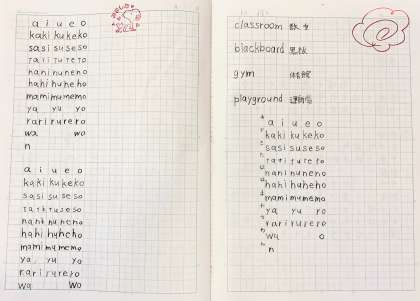 a i u e o
kaki ku keko
sasi suseso
tati tuteto
naninuneno
hahi huheho
mamimumemo
ya yu yo
rari rurero
wa wo
n
a i u e o
kaki ku keko
sasi suseso
naninuneno
hahi huheho
mamimumemo
ya yu yo
rari rurero
wa wo
classroom 教室
blackboard 黒板
gym 体育館
playground 運動場
a i u e o
kakikukeko
sasi suseso
tati tuteto
naninuneno
hahi huheho
mamimumemo
ya yu yo
rari rurero
wa o
n